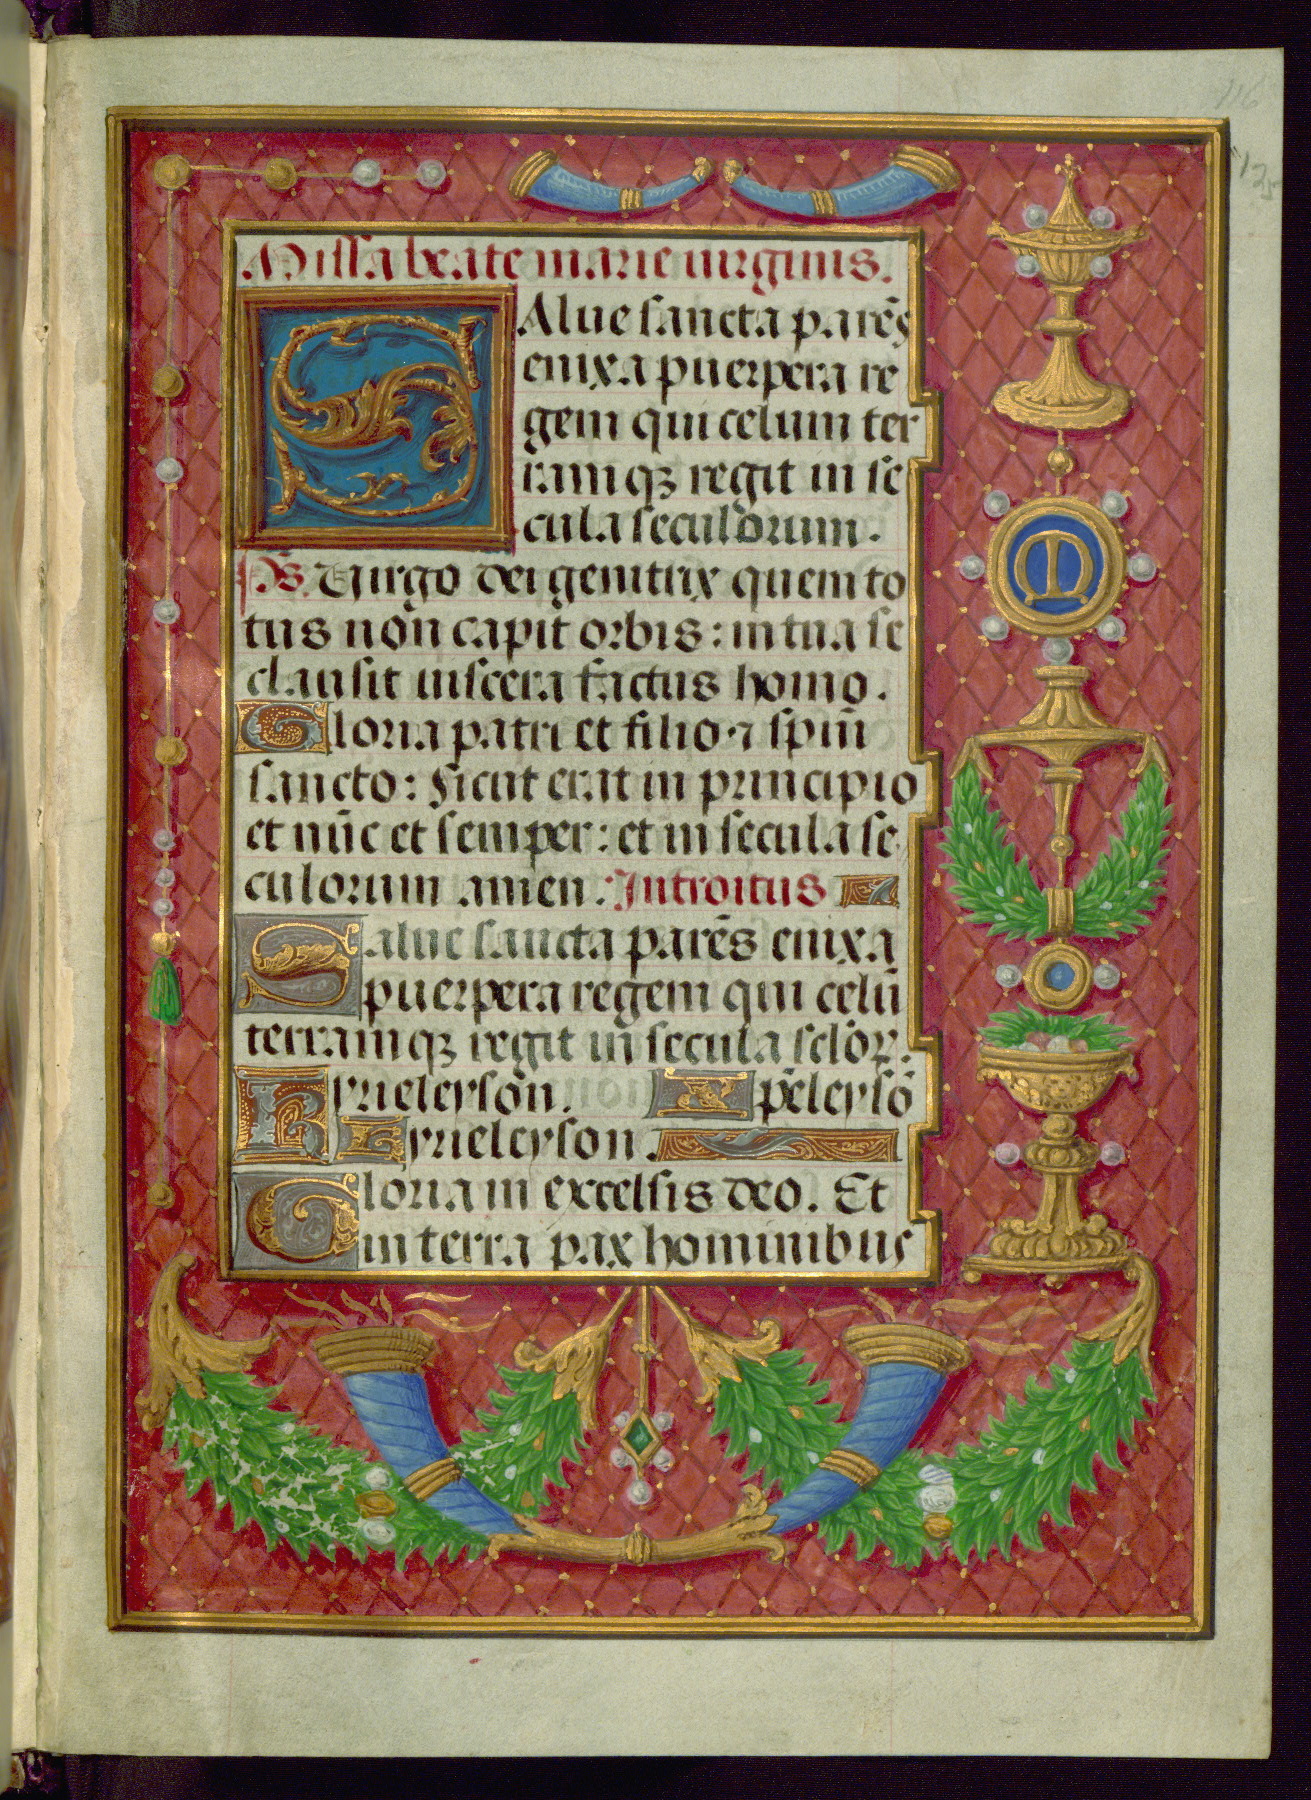 116
125
Missa beate marie uirginis.
SAlue sancta parēs
enixa puerpera re
gem qui celum ter
ramqꝫ regit in se
cula seculorum.
Ps. Virgo dei genitrix quem to
tus non capit orbis: in tua se
clausit uiscera factus homo.
Gloria patri et filio ⁊ spiri͂
sancto: sicut erat in principio
et nūc et semper: et in secula se
culorum amen. Introitus
Salue sancta parēs enixa
puerpera regem qui celū
terramqꝫ regit in secula sclōꝝ.
Kyrieleysōn. Xp̄eleysō
Kyrieleyson.
Gloria in excelsis deo. Et
in terra pax hominibus
M